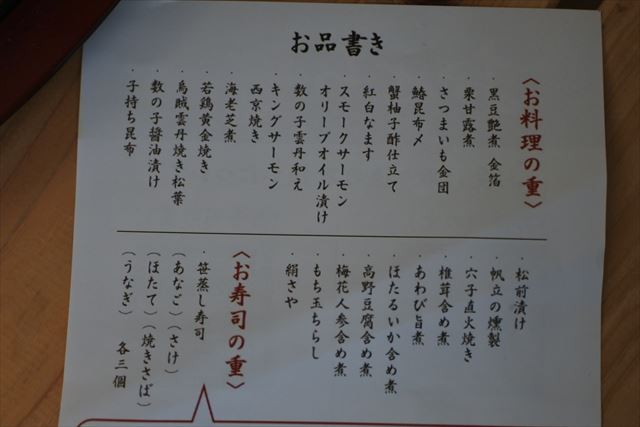 お品書き
〈お料理の重〉
・黒豆艶煮 金箔
・栗甘露煮
・さつまいも金団
・鰆昆布〆
・蟹柚子酢仕立て
・紅白なます
・スモークサーモン
オリーブオイル漬け
・数の子雲丹和え
・キングサーモン
西京焼き
・海老芝煮
・若鶏黄金焼き
・烏賊雲丹焼き松葉
・数の子醤油漬け
・子持ち昆布
・松前漬け
・帆立の燻製
・穴子直火焼き
・椎茸含め煮
・あわび旨煮
・ほたるいか含め煮
・高野豆腐含め煮
・梅花人参含め煮
・もち玉ちらし
・絹さや
〈お寿司の重〉
・笹蒸し寿司
（あなご）（さけ）
（ほたて）（焼きさば）
（うなぎ） 各三個